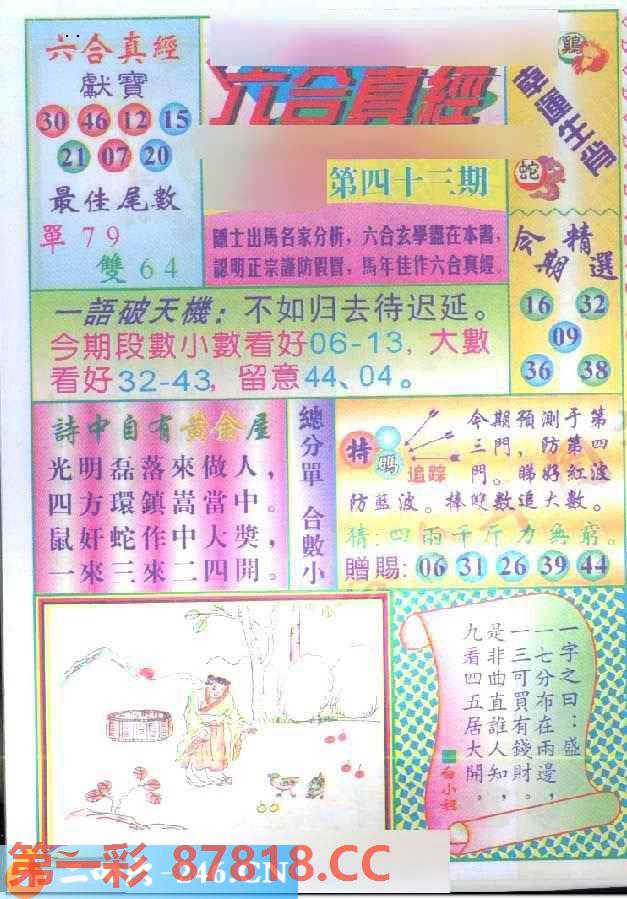 六合真經
獻寶
30 46 12 15
21 07 20
最佳尾數
單79
雙64
六合真經
第四十三期
隱士出馬名家分析，六合玄學盡在本書，
認明正宗謹防假冒，馬年佳作六合真經。
鷄
蛇
今期精選
16 32
09
36 38
一語破天機：不如归去待迟延。
今期段數小數看好06-13，大數
看好32-43，留意44、04。
詩中自有黃金屋
光明磊落來做人，
四方環鎮嵩當中。
鼠奸蛇作中大獎，
一來三來二四開。
總分單 合數小
特碼追踪
今期預測于第
三門，防第四
門。睇好紅波
防藍波。捧雙數追大數。
猜：四兩千斤力無窮。
贈賜：06 31 26 39 44
一字之曰：盛
一七分布在兩邊，
一三可買有錢財。
是非曲直誰人知，
九看四五居大開。
白小姐
第一彩 87818.CC
-246.CN